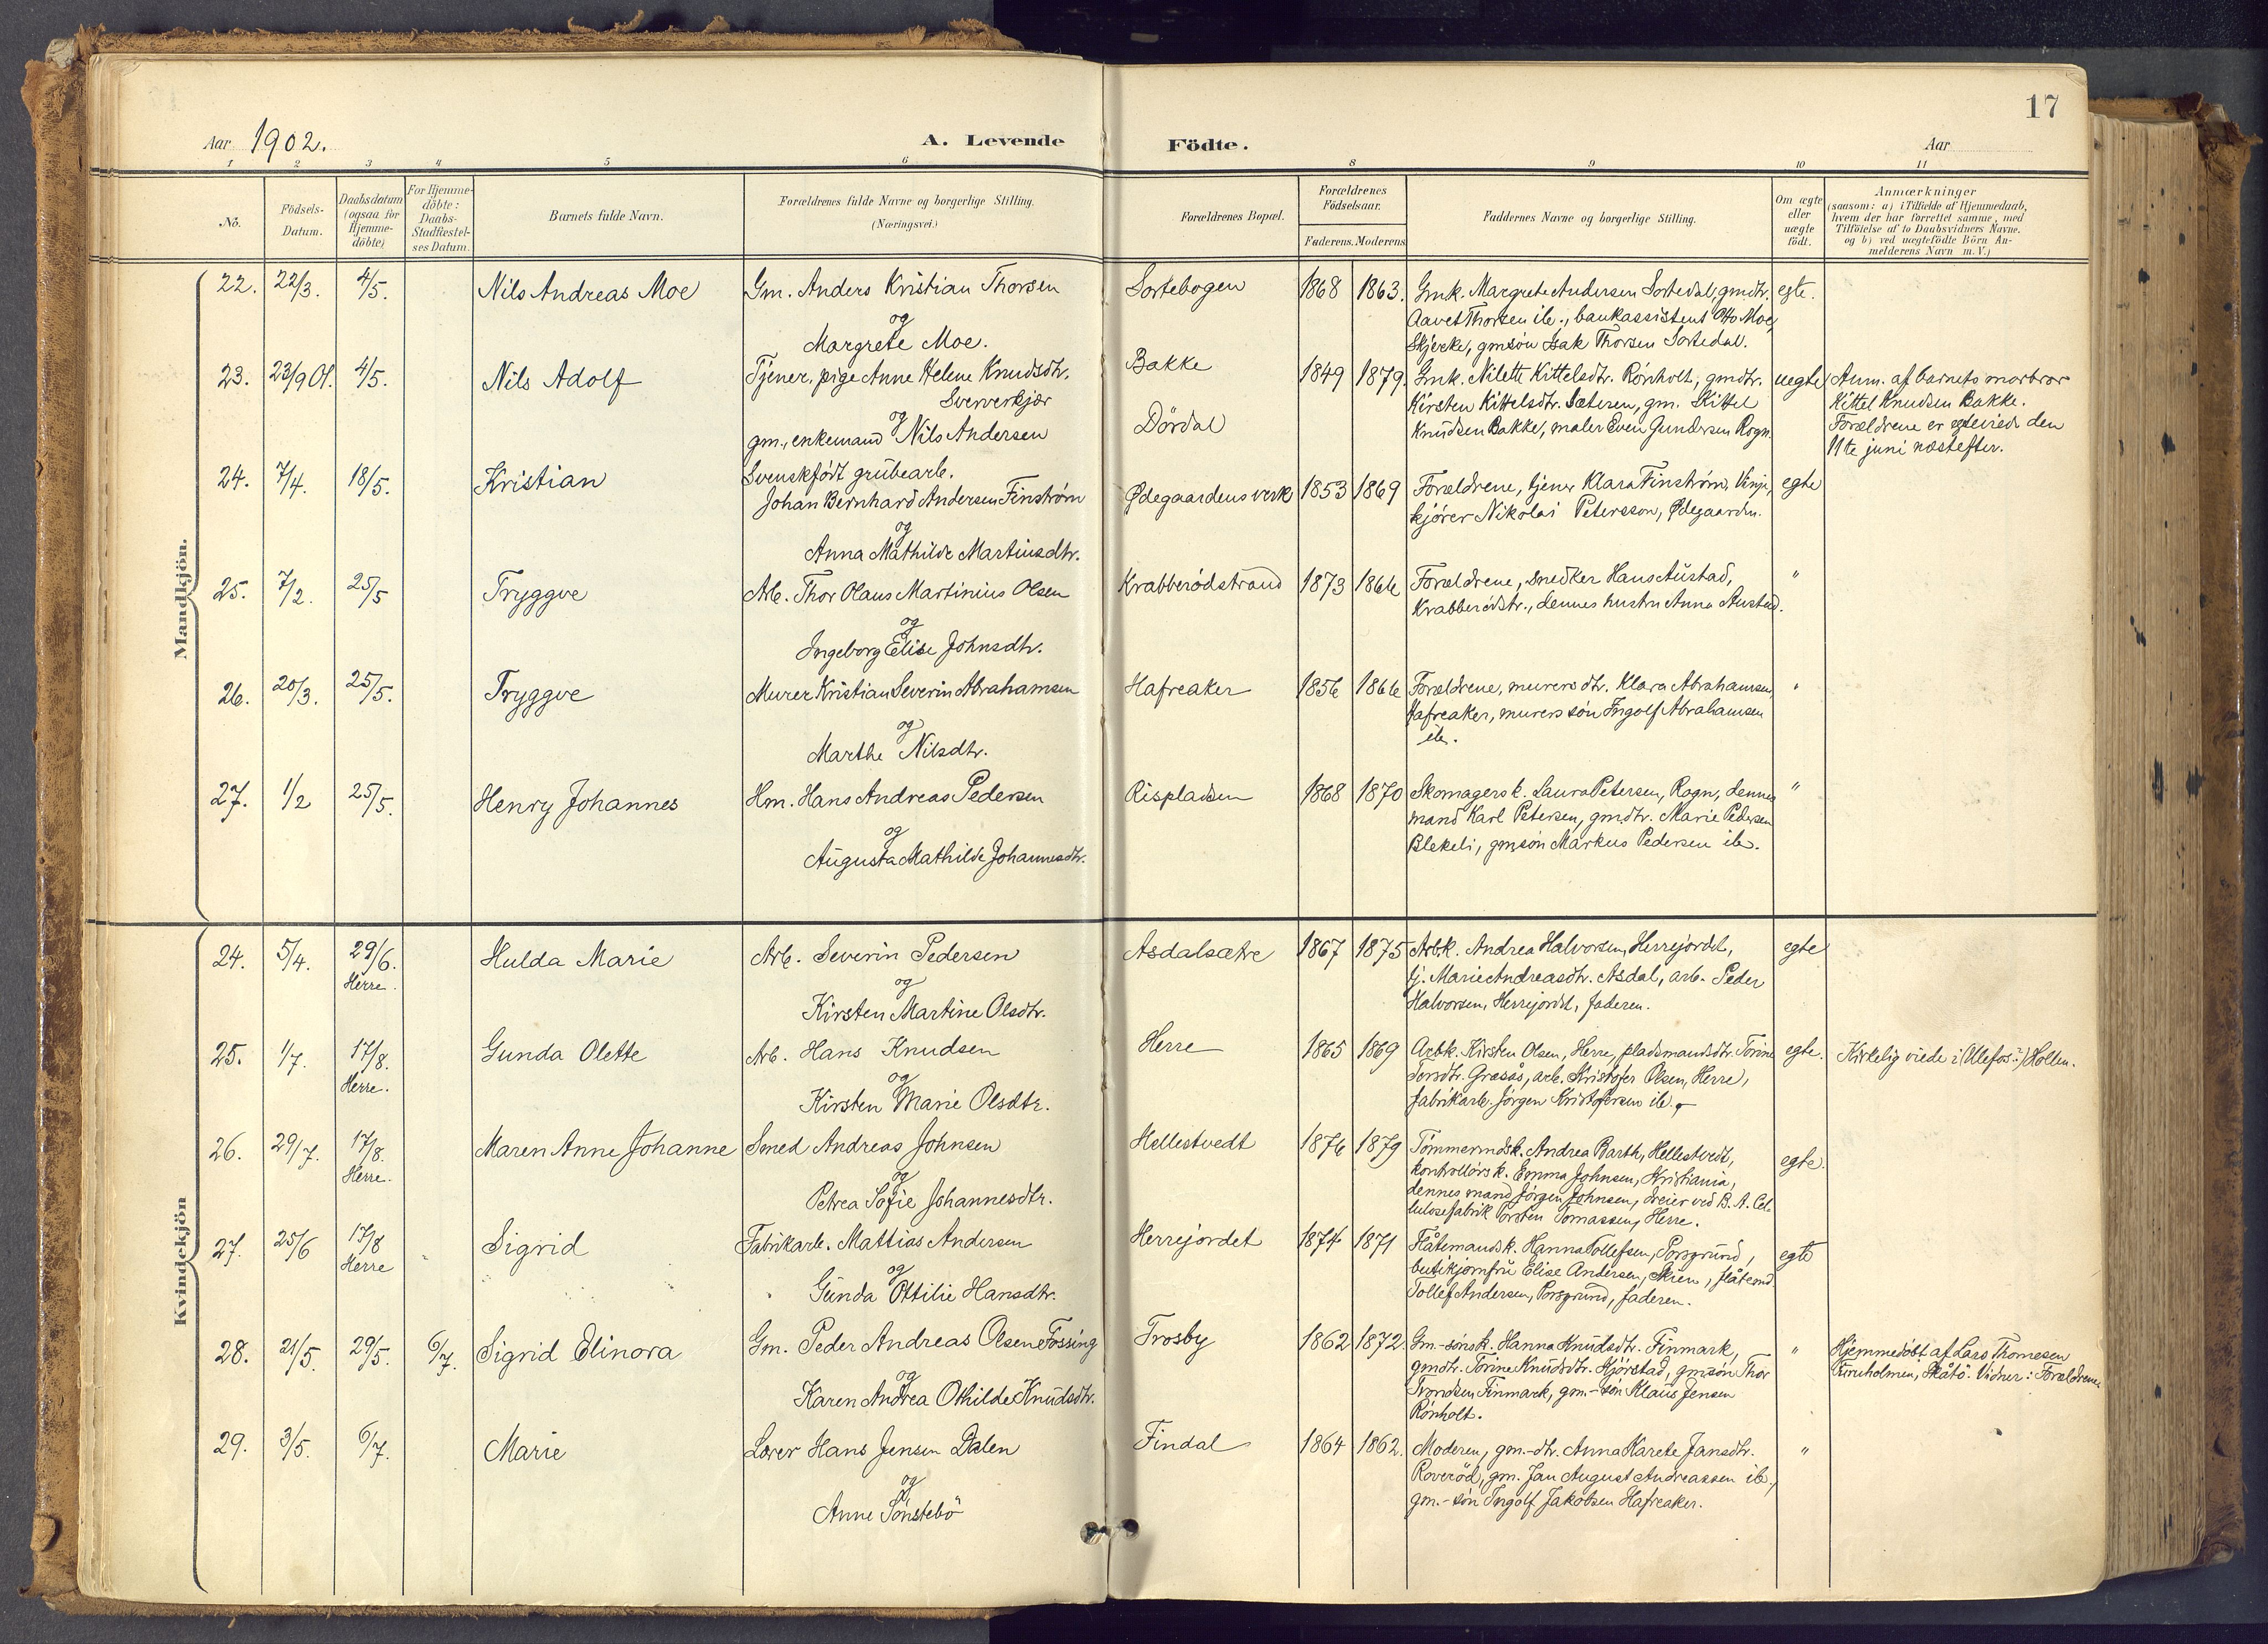 17
Aar 1902. A. Levende Födte. Aar
1 2 3 4 5 6 8 9 10 11
No.
Födsels-
Datum.
Daabsdatum
(ogsaa for
Hjemme-
döbte)
For Hjemme-
döbte:
Daabs-
Stadfæstel-
ses Datum.
Barnets fulde Navn.
Forældrenes fulde Navne og borgerlige Stilling.
(Næringsvei.)
Forældrenes Bopæl.
Forældrenes
Födselsaar.
Faderens. Moderens
Faddernes Navne og borgerlige Stilling.
Om ægte
eller
uægte
födt.
Anmærkninger
(saasom: a) i Tilfælde af Hjemmedaab,
hvem der har forrettet samme, med
Tilföielse af to Daabsvidners Navne.
og b) ved uægtefödte Börn An-
melderens Navn m. V.)
Mandkjön.
22. 22/3. 4/5. Nils Andreas Moe
Gm. Anders Kristian Thorsen
og
Margrete Moe.
Sortebogen 1868 1863.
Gmk. Margrete Andersen Sortedal, gmdtr.
Aavet Thorsen ib., bankassistent Otto Moe,
Skjerke, gmsön Isak Thorsen Sortedal.
egte.
23. 23/9 01. 4/5. Nils Adolf
Tjener. pige Anne Helene Knudsdtr.
Sververkjær
og
gm., enkemand Nils Andersen
Bakke
Dördal
1849 1879.
Gmk. Nilette Kittelsdtr. Rönholt, gmdtr.
Kirsten Kittelsdtr. Sæteren, gm. Kittel
Knudsen Bakke, maler Even Gundersen Rogn.
uegte
Anm. af barnets morbror
Kittel Knudsen Bakke.
Forældrene er egteviede den
11te juni næstefter.
24. 7/4. 18/5. Kristian
Svenskfödt grubearb.
Johan Bernhard Andersen Finström
og
Anna Mathilde Martinsdtr.
Ødegaardens verk 1853 1869
Forældrene, tjener Klara Finström, Vinje,
kjörer Nikolai Petersson, Ødegaarden.
egte
25. 7/2. 25/5 Tryggve
Arb. Thor Olaus Martinius Olsen
og
Ingeborg Elise Johnsdtr.
Krabberödstrand 1873 1866
Forældrene, snedker Hans Austad,
Krabberödstr., dennes hustru Anna Austad.
"
26. 20/3. 25/5. Tryggve
Murer Kristian Severin Abrahamsen
og
Marthe Nilsdtr.
Hafreaker 1856 1866
Forældrene, murers dtr. Klara Abrahamsen,
Hafreaker, murers sön Ingolf Abrahamsen
ib.
"
27. 1/2 25/5. Henry Johannes
Hm. Hans Andreas Pedersen
og
Augusta Mathilde Johannesdtr.
Rispladsen 1868 1870
Skomagers k. Laura Petersen, Rogn, dennes
mand Karl Petersen, gmdtr. Marie Pedersen
Blekeli, gmsön Markus Pedersen ib.
"
Kvindekjön
24. 5/4. 29/6. Herre. Hulda Marie
Arb. Severin Pedersen
og
Kirsten Martine Olsdtr.
Asdalsætre 1867 1875
Arbk. Andrea Halvorsen, Herrejordet,
tj. Marie Andreasdtr. Asdal, arb. Peder
Halvorsen, Herrejordet, faderen.
egte
25. 1/7. 17/8. Herre. Gunda Olette
Arb. Hans Knudsen
og
Kirsten Marie Olsdtr.
Herre 1865 1869
Arbk. Kirsten Olsen, Herre, pladsmandsdtr. Torine
Torsdtr. Grasås, arb. Kristofer Olsen, Herre,
fabrikarb. Jörgen Kristofersen ib.
egte.
Kirkelig viede i (Ulefos?) Hollen.
26. 29/7. 17/8. Herre. Maren Anne Johanne
Smed Andreas Johnsen
og
Petrea Sofie Johannesdtr.
Hellestvedt 1876 1879
Tömmermdsk. Andrea Barth, Hellestvedt,
kontrollörs k. Emma Johnsen, Kristiania,
dennes mand Jörgen Johnsen, dreier ved B. A. Cel-
lulosefabrik Torsten Tomassen, Herre.
egte.
27. 25/6 17/8 Herre Sigrid
Fabrikarb. Mattias Andersen
og
Gunda Ottilie Hansdtr.
Herrejordet 1874 1871
Flåtemandsk. Hanna Tollefsen, Porsgrund,
butikjomfru Elise Andersen, Skien, flåtemd
Tollef Andersen, Porsgrund, faderen.
egte
28. 21/5. 29/5. 6/7. Sigrid Elinora
Gm. Peder Andreas Olsen Fossing
og
Karen Andrea Othilde Knudsdtr.
Trosby 1862 1872.
Gm.-sönsk. Hanna Knudsdtr. Finmark,
gmdtr. Torine Knudsdtr. Hjörstad, gmsön Thor
Trondsen Finmark, gm.-sön Klaus Jensen
Rönholt.
"
Hjemmedöbt af Lars Thomesen
Furuholmen, Skåtö. Vidner: Forældrene.
29. 3/5. 6/7. Marie
Lærer Hans Jensen Dalen
og
Anne Sönstebö
Findal 1864 1862.
Moderen, gm.-dtr. Anna Karete Jansdtr.
Roveröd, gm. Jan August Andreassen ib.,
gm.-sön Ingolf Jakobsen Hafreaker.
"